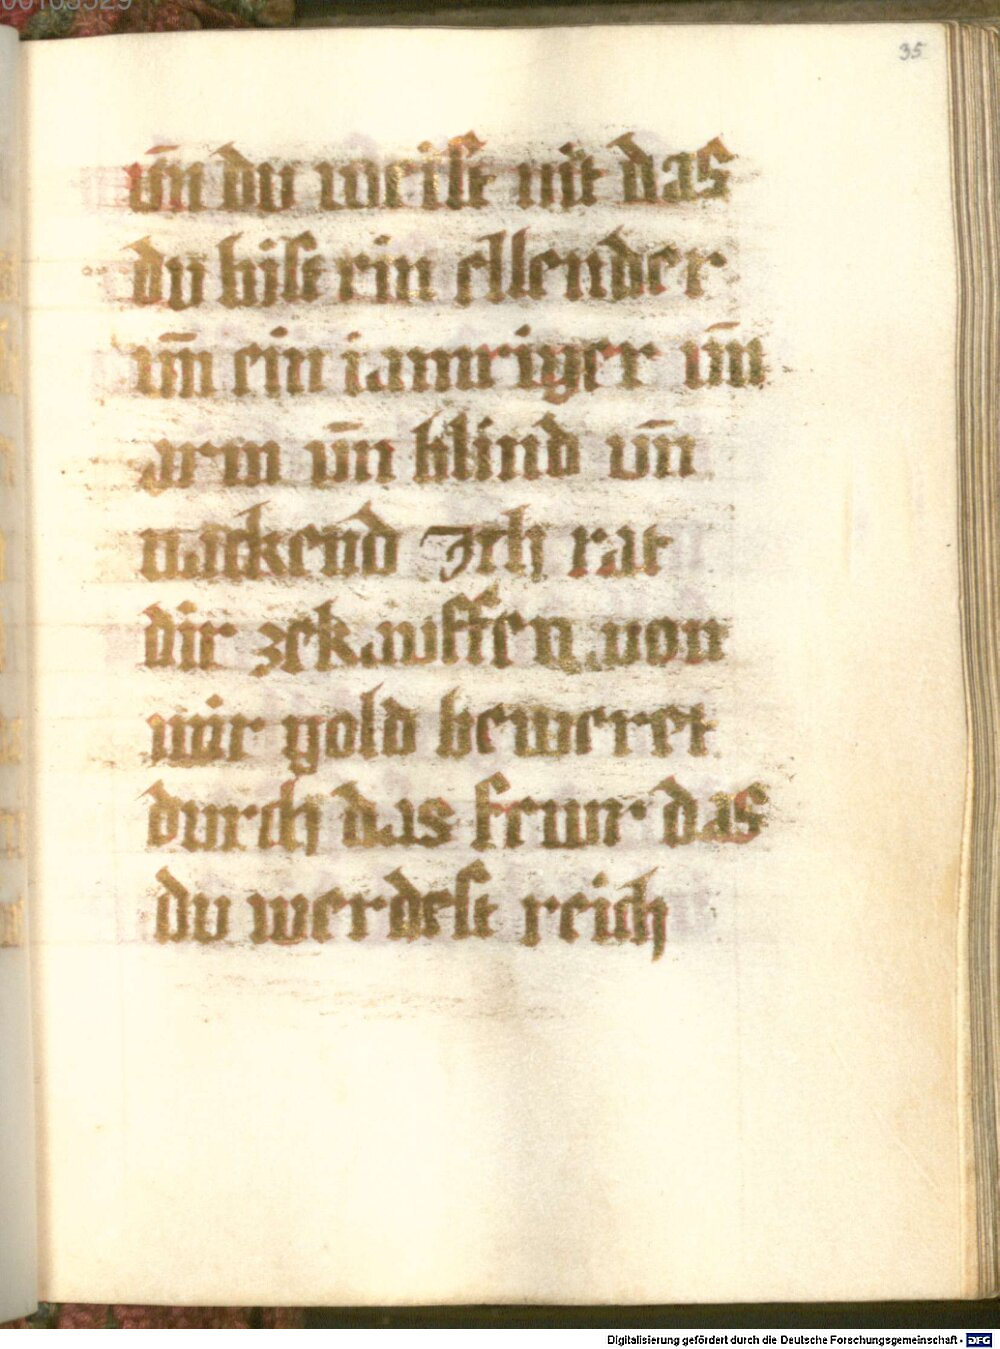 00103529
35
vn̄ du weist nit das
du bist ein ellender
vn̄ ein iamriger vn̄
arm vn̄ blind vn̄
nackend Ich rat
dir zekauffen von
mir gold beweret
durch das feur das
du werdest reich
Digitalisierung gefördert durch die Deutsche Forschungsgemeinschaft - DFG